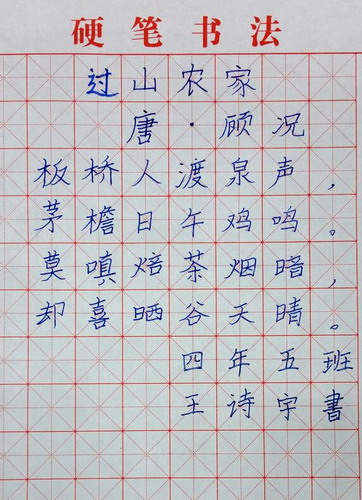 硬笔书法
过山农家
唐·顾况
板桥人渡泉声，
茅檐日午鸡鸣。
莫嗔焙茶烟暗，
却喜晒谷天晴。
四年五班
王诗宇書